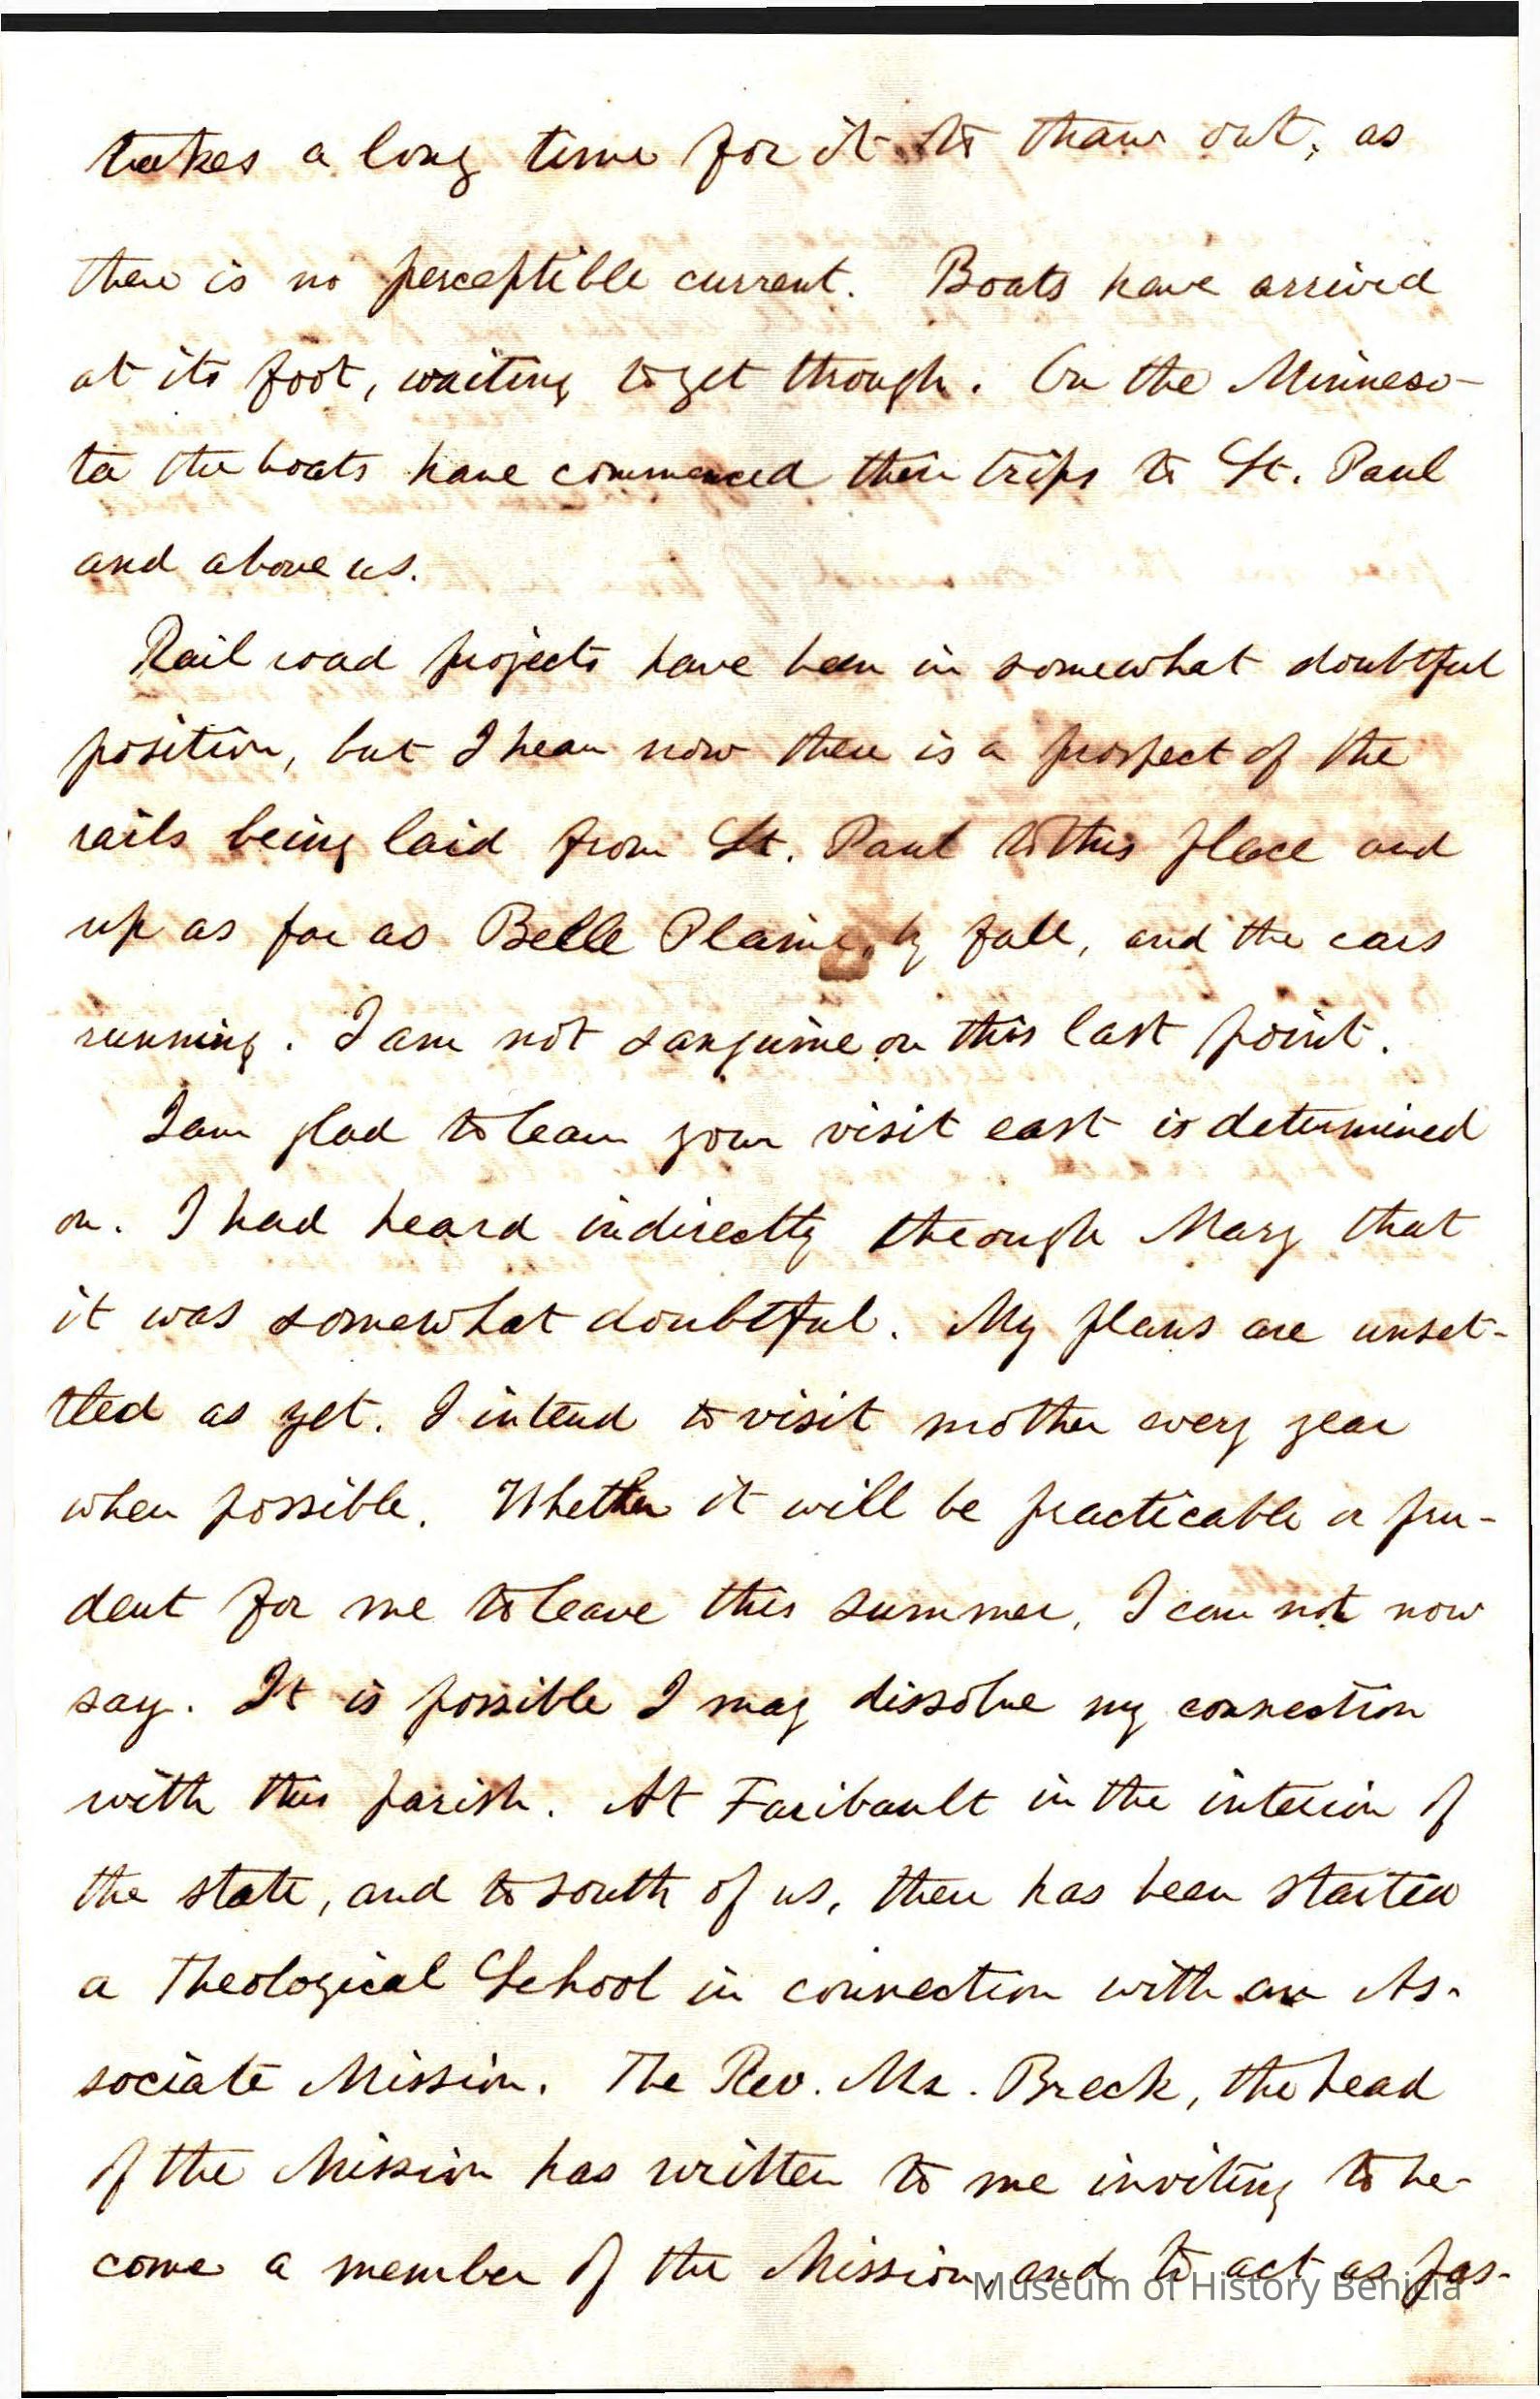 takes a long time for it to thaw out, as
there is no perceptible current. Boats have arrived
at its foot, waiting to get through. On the Minneso-
ta the boats have commenced their trips to St. Paul
and above us.
Rail road projects have been in somewhat doubtful
position, but I hear now there is a prospect of the
rails being laid from St. Paul to this place and
up as far as Belle Plaine, by fall, and the cars
running. I am not sanguine on this last point.
I am glad to learn your visit east is determined
on. I had heard indirectly through Mary that
it was somewhat doubtful. My plans are unset-
tled as yet. I intend to visit mother every year
when possible. Whether it will be practicable or pru-
dent for me to leave this summer, I can not now
say. It is possible I may dissolve my connection
with this parish. At Faribault in the interior of
the state, and to south of us, there has been started
a Theological School in connection with an As-
sociate Mission. The Rev. Mr. Breck, the head
of the Mission has written to me inviting to be-
come a member of the Mission, and to act as pas-
Museum of History Benicia